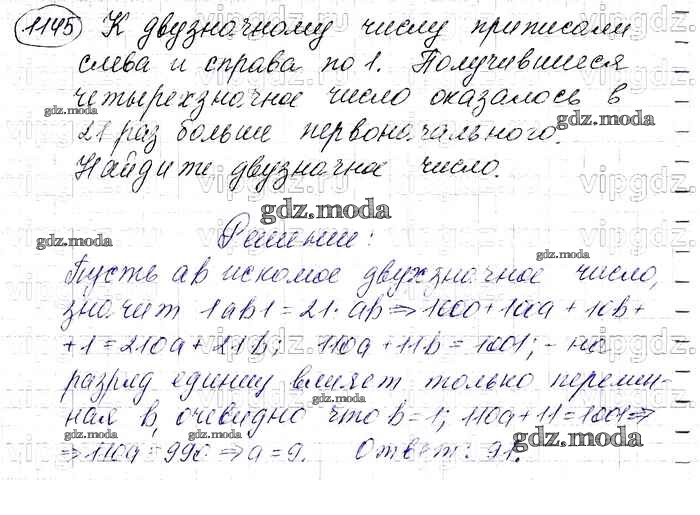 1145 К двузначному числу приписали
слева и справа по 1. Получившееся
четырехзначное число оказалось в
21 раз больше первоначального.
Найдите двузначное число.
Решение:
Пусть ab искомое двухзначное число,
значит 1ab1 = 21· ab ⇒ 1000 + 100a + 10b +
+ 1 = 210a + 21b; 110a + 11b = 1001; - на
разряд единиц влияет только перемен-
ная b, очевидно что b = 1; 110a + 11 = 1001 ⇒
⇒ 110a = 990 ⇒ a = 9. Ответ: 91.
gdz.moda
gdz.moda
gdz.moda
gdz.moda
gdz.moda
gdz.moda
gdz.moda
gdz.moda
gdz.moda
gdz.moda